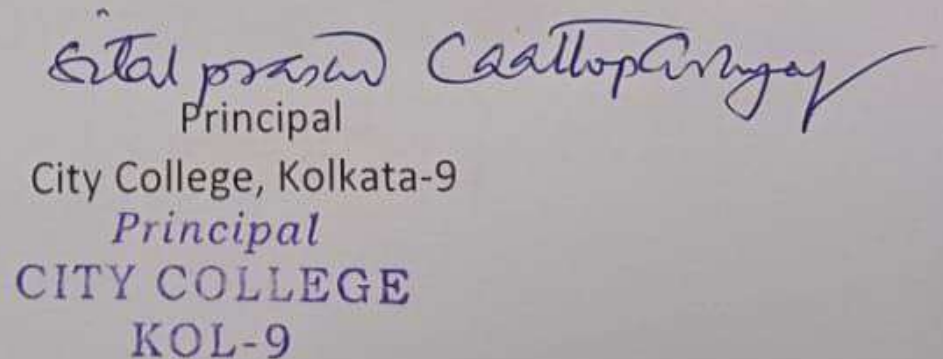 Sital prasad Chattopadhyay
Principal
City College, Kolkata-9
Principal
CITY COLLEGE
KOL-9